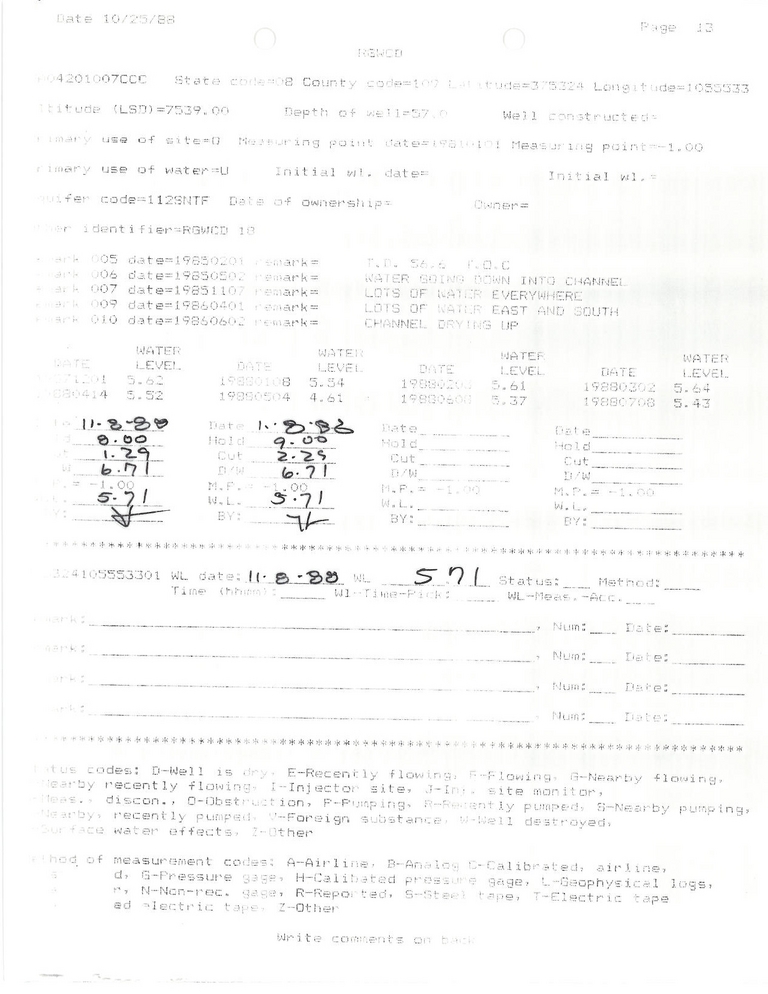 Date 10/25/88
Page 13
RGWCD
04201007CCC State code=08 County code=109 Latitude=375324 Longitude=1055533
titude (LSD)=7539.00 Depth of well=57.0 Well constructed=
rimary use of site=O Measuring point date=19810101 Measuring point=-1.00
rimary use of water=U Initial wl. date= Initial wl.=
quifer code=112SNTF Date of ownership= Owner=
her identifier=RGWCD 18
mark 005 date=19850201 remark= T.D. 56.6 T.O.C
mark 006 date=19850502 remark= WATER GOING DOWN INTO CHANNEL
mark 007 date=19851107 remark= LOTS OF WATER EVERYWHERE
mark 009 date=19860401 remark= LOTS OF WATER EAST AND SOUTH
mark 010 date=19860602 remark= CHANNEL DRYING UP
WATER WATER WATER WATER
DATE LEVEL DATE LEVEL DATE LEVEL DATE LEVEL
871201 5.62 19880108 5.54 5.61 19880302 5.64
880414 5.52 19880504 4.61 19880600 5.37 19880708 5.43
11-8-88 Date 11-8-88 Date Date:
8.00 Hold 9.00 Hold Hold
1.29 Cut 2.29 Cut Cut
W 6.71 D/W 6.71 D/W D/W
= -1.00 M.P.= -1.00 M.P.= -1.00 M.P.= -1.00
5.71 W.L. 5.71 W.L. W.L.
BY: BY: BY: BY:
324105553301 WL date: 11-8-88 WL 5.71 Status: Method:
Time (hhmm): Wl-Time-Pick: WL-Meas.-Acc.
mark: , Num: Date:
mark: , Num: Date:
mark: , Num: Date:
mark: , Num: Date:
atus codes: D-Well is dry, E-Recently flowing, F-Flowing, G-Nearby flowing,
Nearby recently flowing, I-Injector site, J-Inj. site monitor,
Meas., discon., O-Obstruction, P-Pumping, R-Recently pumped, S-Nearby pumping,
Nearby, recently pumped, V-Foreign substance, W-Well destroyed,
Surface water effects, Z-Other
thod of measurement codes: A-Airline, B-Analog C-Calibrated, airline,
d, G-Pressure gage, H-Calibated pressure gage, L-Geophysical logs,
r, N-Non-rec. gage, R-Reported, S-Steel tape, T-Electric tape
ed electric tape, Z-Other
Write comments on back